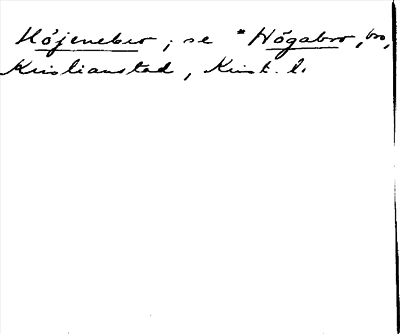 Höjenebro; se *Högabro, bro,
Kristianstad, Krist. l.